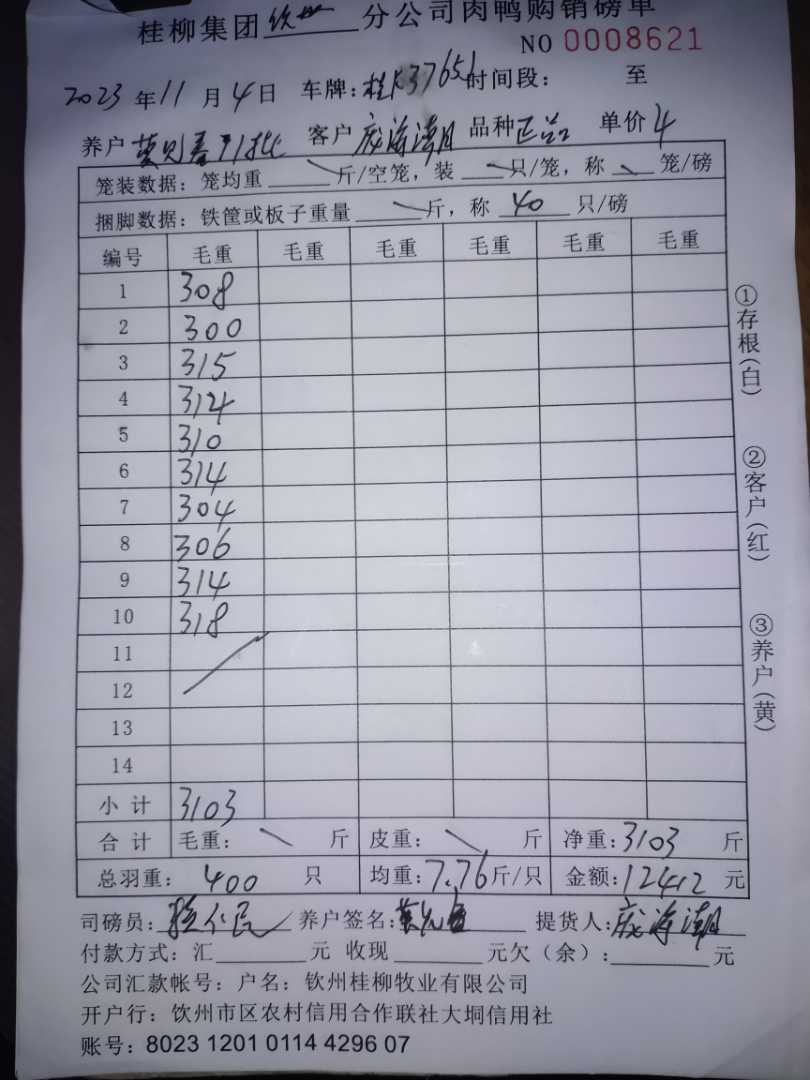 桂柳集团 钦州 分公司肉鸭购销磅单
NO 0008621
2023 年 11 月 4 日 车牌: 桂K37651 时间段: 至
养户 客户 庞海潮 品种 正品 单价 4
笼装数据: 笼均重 斤/空笼, 装 只/笼, 称 笼/磅
捆脚数据: 铁筐或板子重量 斤, 称 40 只/磅
编号 毛重 毛重 毛重 毛重 毛重 毛重
1 308
2 300
3 315
4 314
5 310
6 314
7 304
8 306
9 314
10 318
11
12
13
14
小计 3103
合计 毛重: 斤 皮重: 斤 净重: 3103 斤
总羽重: 400 只 均重: 7.76 斤/只 金额: 12412 元
司磅员: 养户签名: 提货人: 庞海潮
付款方式: 汇 元 收现 元欠(余): 元
公司汇款帐号: 户名: 钦州桂柳牧业有限公司
开户行: 钦州市区农村信用合作联社大垌信用社
账号: 8023 1201 0114 4296 07
①存根(白)
②客户(红)
③养户(黄)